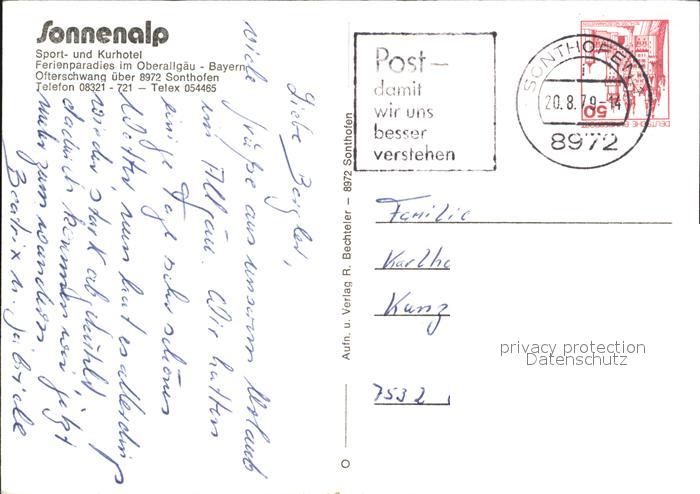 Sonnenalp
Sport- und Kurhotel
Ferienparadies im Oberallgäu - Bayern
Ofterschwang über 8972 Sonthofen
Telefon 08321 - 721 — Telex 054465
Liebe
viele Grüße aus unserem Urlaub
im Allgäu. Wir hatten
einige Tage sehr schönes
Wetter, nun hat es allerdings
wieder stark abgekühlt,
dadurch kommen wir jetzt
mehr zum wandern.
Beatrix u. Gabriele
Aufn. u. Verlag R. Bechteler — 8972 Sonthofen
Post—
damit
wir uns
besser
verstehen
SONTHOFEN
20.8.79-14
8972
50
DEUTSCHE BUNDESPOST
Familie
Karlhe
Kunz
7532
privacy protection
Datenschutz